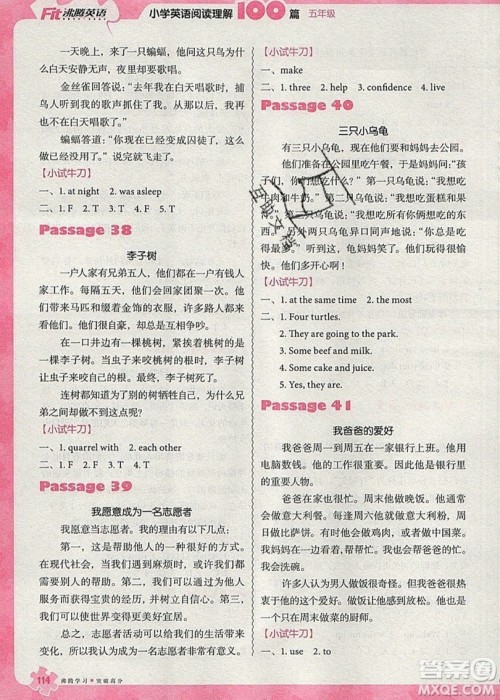 Fit 沸腾英语
小学英语阅读理解100篇 五年级
去，看到了这一切。蝙蝠问它这只鸟为什么
白天安静无声，而夜晚唱歌。
金丝雀回答说：“我在白天唱歌时，捕
鸟人听到我的歌声抓住了我。从此我再也不
在白天唱歌了。”
蝙蝠答道：“你现在已经变成囚徒了，这
么做没用了。”说完就飞走了。
【小试牛刀】
一、1. at night 2. was asleep
二、1. F 2. F 3. T 4. F 5. T
Passage 38
李子树
一户人家有兄弟五人，他们在一户有钱人
家工作。每隔五天，他们会一起回家一次。他
们常带来马匹和镶着金饰的衣服，许多路人都
来看他们。但是，他们总是互相争吵。
在一口井旁有一棵桃树，紧挨着桃树的是
一棵李子树。当虫子来咬桃树的树根时，李子
树就让虫子来咬自己的树根。最终，李子树死
了，而桃树却没死。
连树都知道为别的树牺牲自己，为什么兄
弟之间却不能做到这点呢？
【小试牛刀】
一、1. quarrel with 2. each other
二、1. F 2. T 3. F 4. T
Passage 39
我愿意成为一名志愿者
我愿意当志愿者。我有以下几点：
第一，这是帮助他人的一种很好的方式。
在现代社会，当我们遇到麻烦时，我们或多或
少都需要被帮助。第二，志愿者可以从中
获得宝贵的经历，并树立自信。第三，当我
们为他人提供帮助时，生活会变得更有意义，
我们也会感到更快乐。
总之，志愿者活动不仅能帮助他人，而
且对我们自己也有益。
【小试牛刀】
一、make
二、1. three 2. help 3. confidence 4. live
Passage 40
三只小乌龟
现在，他们要和妈妈去公园。
他们准备在公园里吃午餐，乌龟妈妈问：“孩子
们，你们想吃什么？”第一只乌龟说：“我想吃
牛肉和牛奶。”第二只说：“我想吃蛋糕和果
汁。”第三只乌龟说：“他们俩的东西我都想
吃。”另外两只乌龟异口同声地说：“你吃得最
多！”听到这，龟妈妈笑了起来。看，他
们多开心啊！
【小试牛刀】
一、1. at the same time 2. the most
二、1. Four turtles.
2. They are going to the park.
3. Some beef and milk.
4. Some cake and juice.
5. Yes, they are.
Passage 41
我爸爸的爱好
我爸爸周一到周五在一家银行工作。他使
用电脑数钱。他每天都很忙，因为他是银行里
的重要人物。
爸爸喜欢做饭。周末他喜欢给我们
做意大利菜。每逢周六他会做意大利粉，周
日做比萨饼。有时他会做鸡肉，而我和妹妹会
给他洗碗。
许多人认为男人做饭很奇怪。但我爸爸却
不这样认为。他喜欢在周末做饭，因为他整周
都在银行工作，做饭能使他感到放松。他也非
常擅长做饭。
【小试牛刀】
一、1. use 2. to
114 沸腾学习 突破高分
答案圈
MXQE.COM